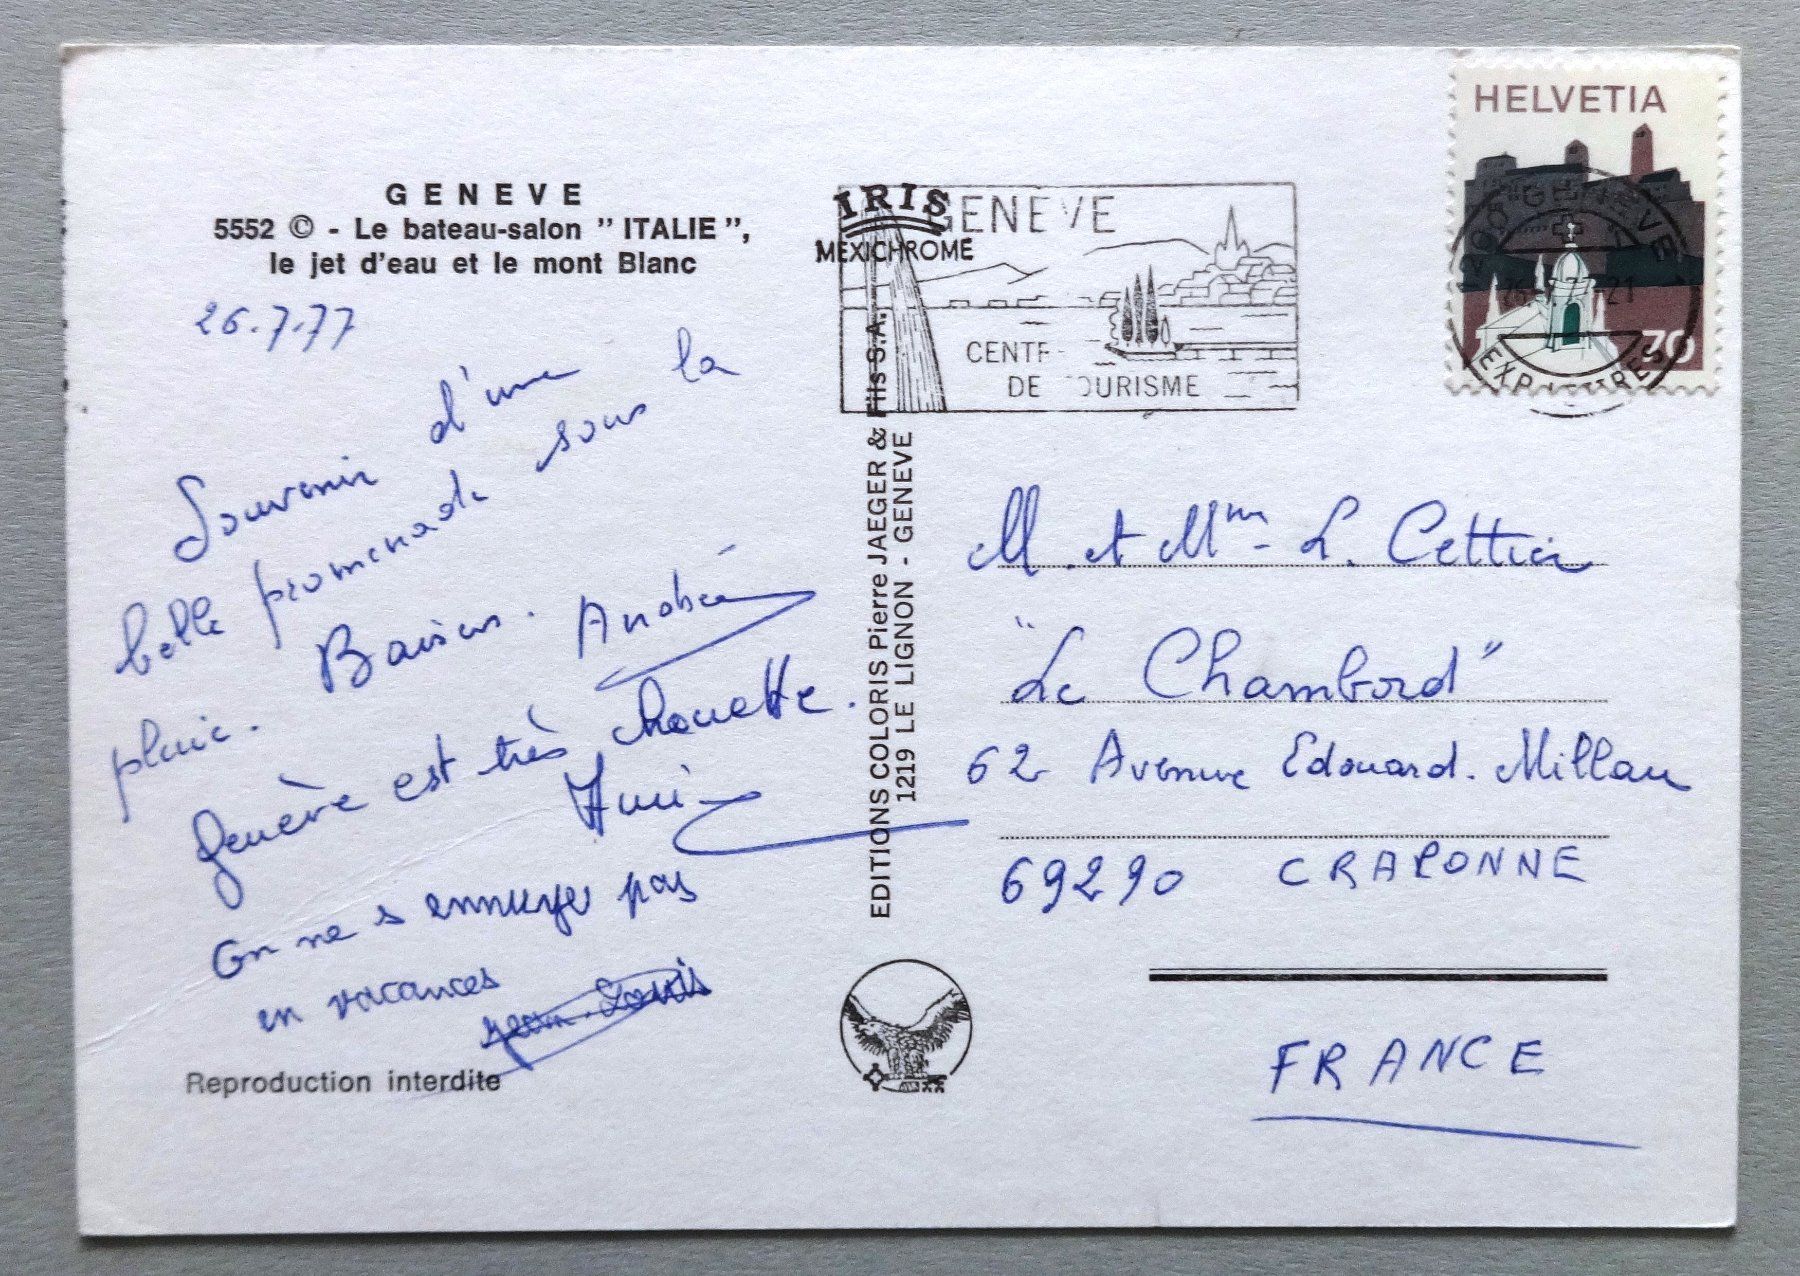 GENEVE
5552 © - Le bateau-salon "ITALIE",
le jet d'eau et le mont Blanc
26.7.77
Souvenir d'une
belle promenade sous la
pluie. Baisers. Andrée
Genève est très chouette.
On ne s ennuye pas
en vacances
Jean-Louis
Reproduction interdite
IRIS
MEXICHROME
EDITIONS COLORIS Pierre JAEGER & Fils S.A.
1219 LE LIGNON - GENEVE
GENEVE
CENTR
DE TOURISME
HELVETIA
30
GENEVE
M. et Mme L. Cettier
"Le Chambord"
62 Avenue Edouard. Millau
69290 CRAPONNE
FRANCE